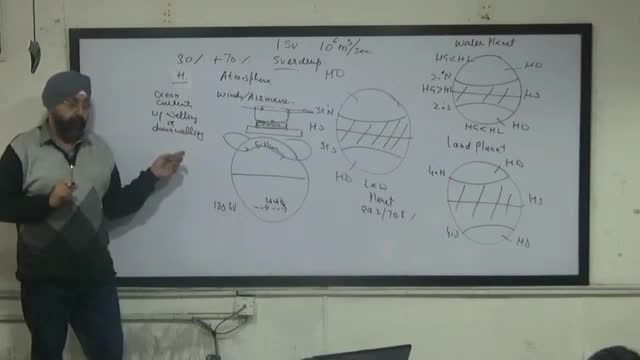 1 SV 10⁶ m³/sec
30% +70% Sverdrup
H Atmosphere HD
Ocean
Currents
Upwelling
or
downwelling
Winds/Airmass
HS
HD
L&W
Planet
130 SV
Water Planet
HG<HL HD
20N
HG>HL HS
20S
HG<HL HD
Land Planet
HD
40N
HS
HD